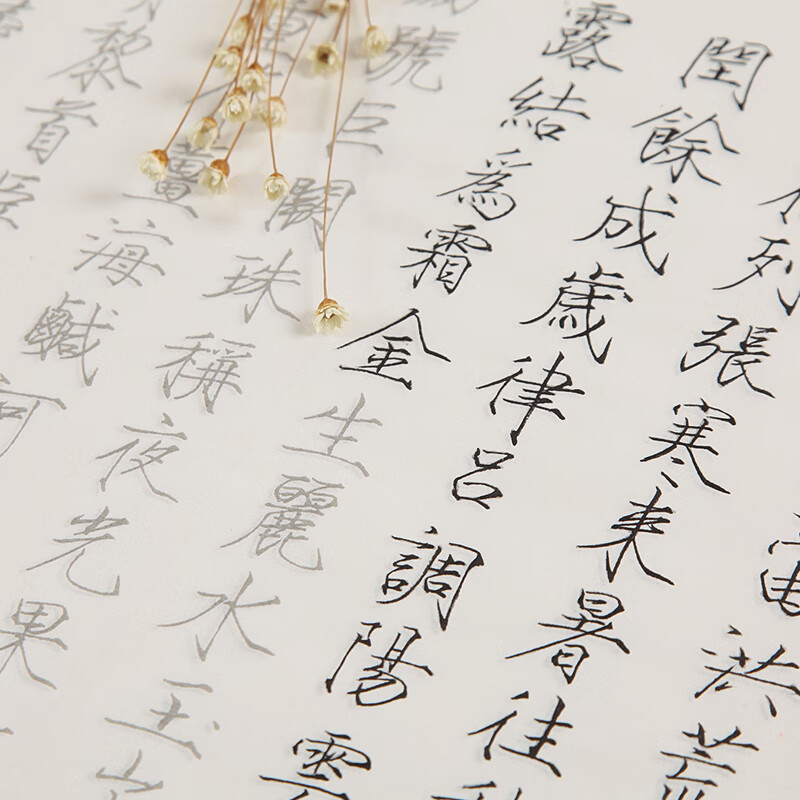 宙洪荒
列張寒来暑往
閏餘成歲律呂調陽雲
露結爲霜金生麗水玉
號巨闕珠稱夜光果
薑海鹹河
黎首臣